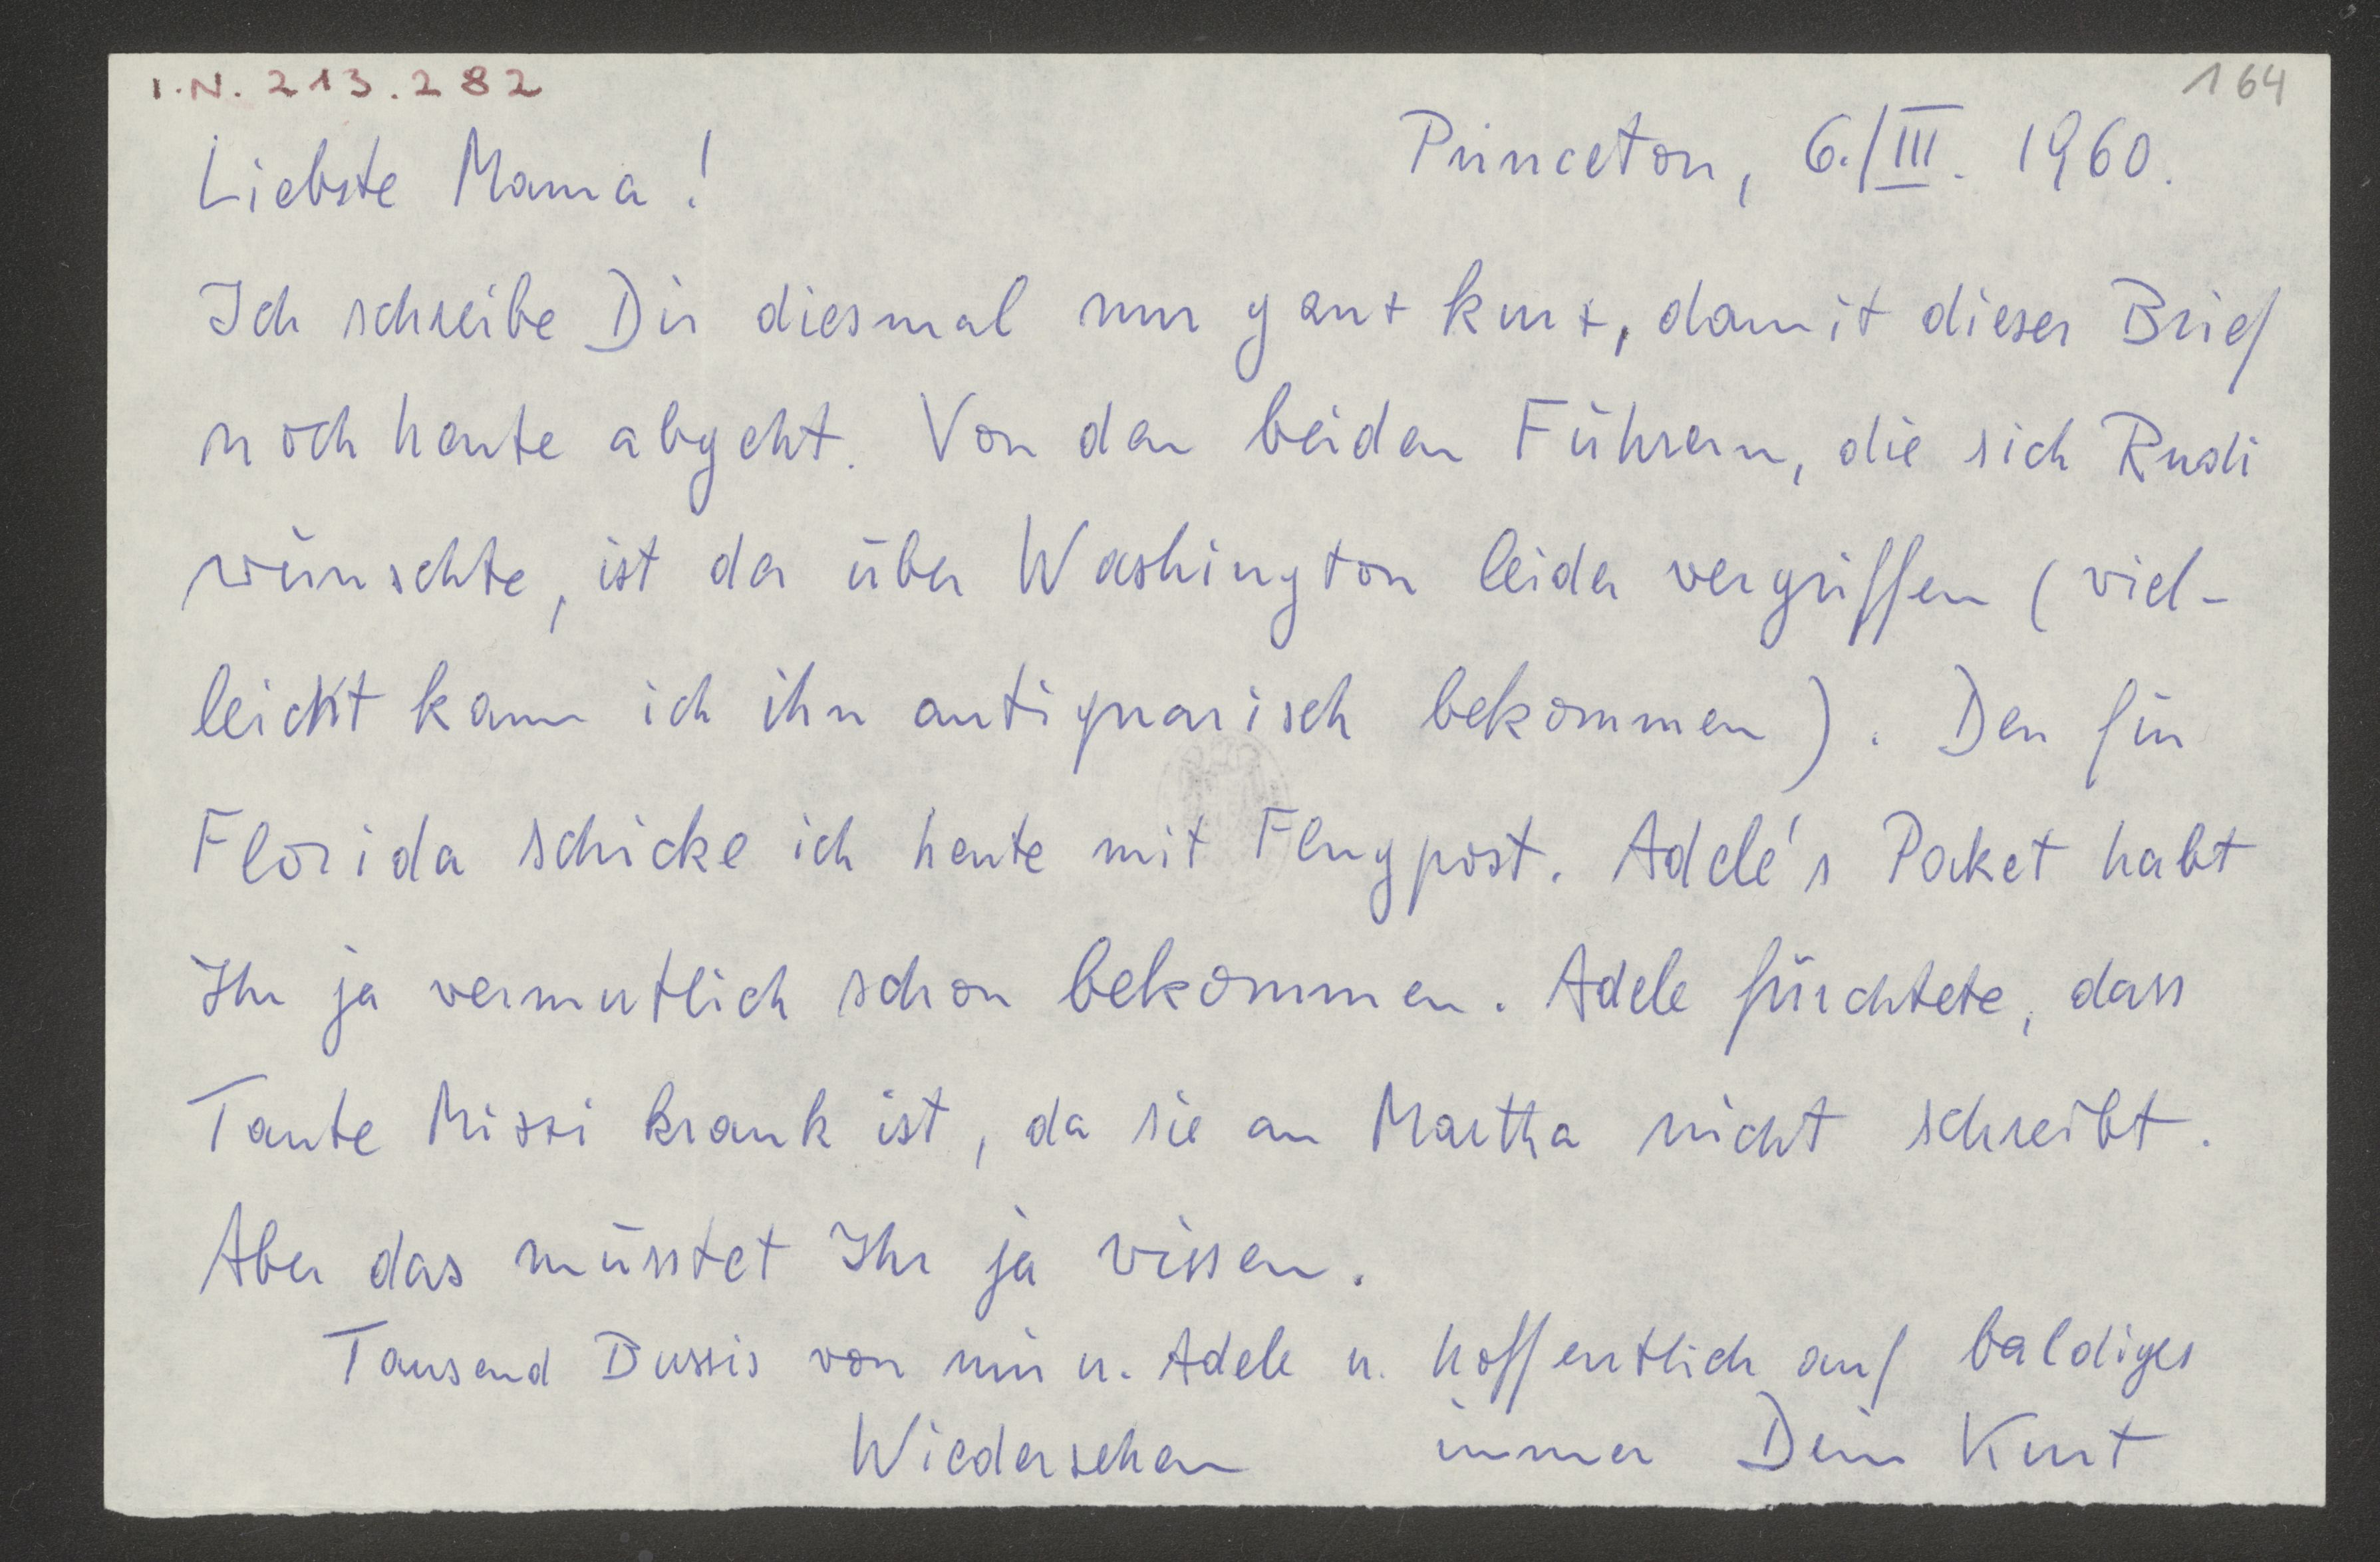 I.N. 213.282
164
Princeton, 6./III. 1960.
Liebste Mama!
Ich schreibe Dir diesmal nur ganz kurz, damit dieser Brief
noch heute abgeht. Von den beiden Führern, die sich Rudi
wünschte, ist der über Washington leider vergriffen (viel-
leicht kann ich ihn antiquarisch bekommen). Den für
Florida schicke ich heute mit Flugpost. Adele's Paket habt
Ihr ja vermutlich schon bekommen. Adele fürchtete, dass
Tante Mizzi krank ist, da sie an Martha nicht schreibt.
Aber das müsstet Ihr ja wissen.
Tausend Bussis von mir u. Adele u. hoffentlich auf baldiges
Wiedersehen immer Dein Kurt